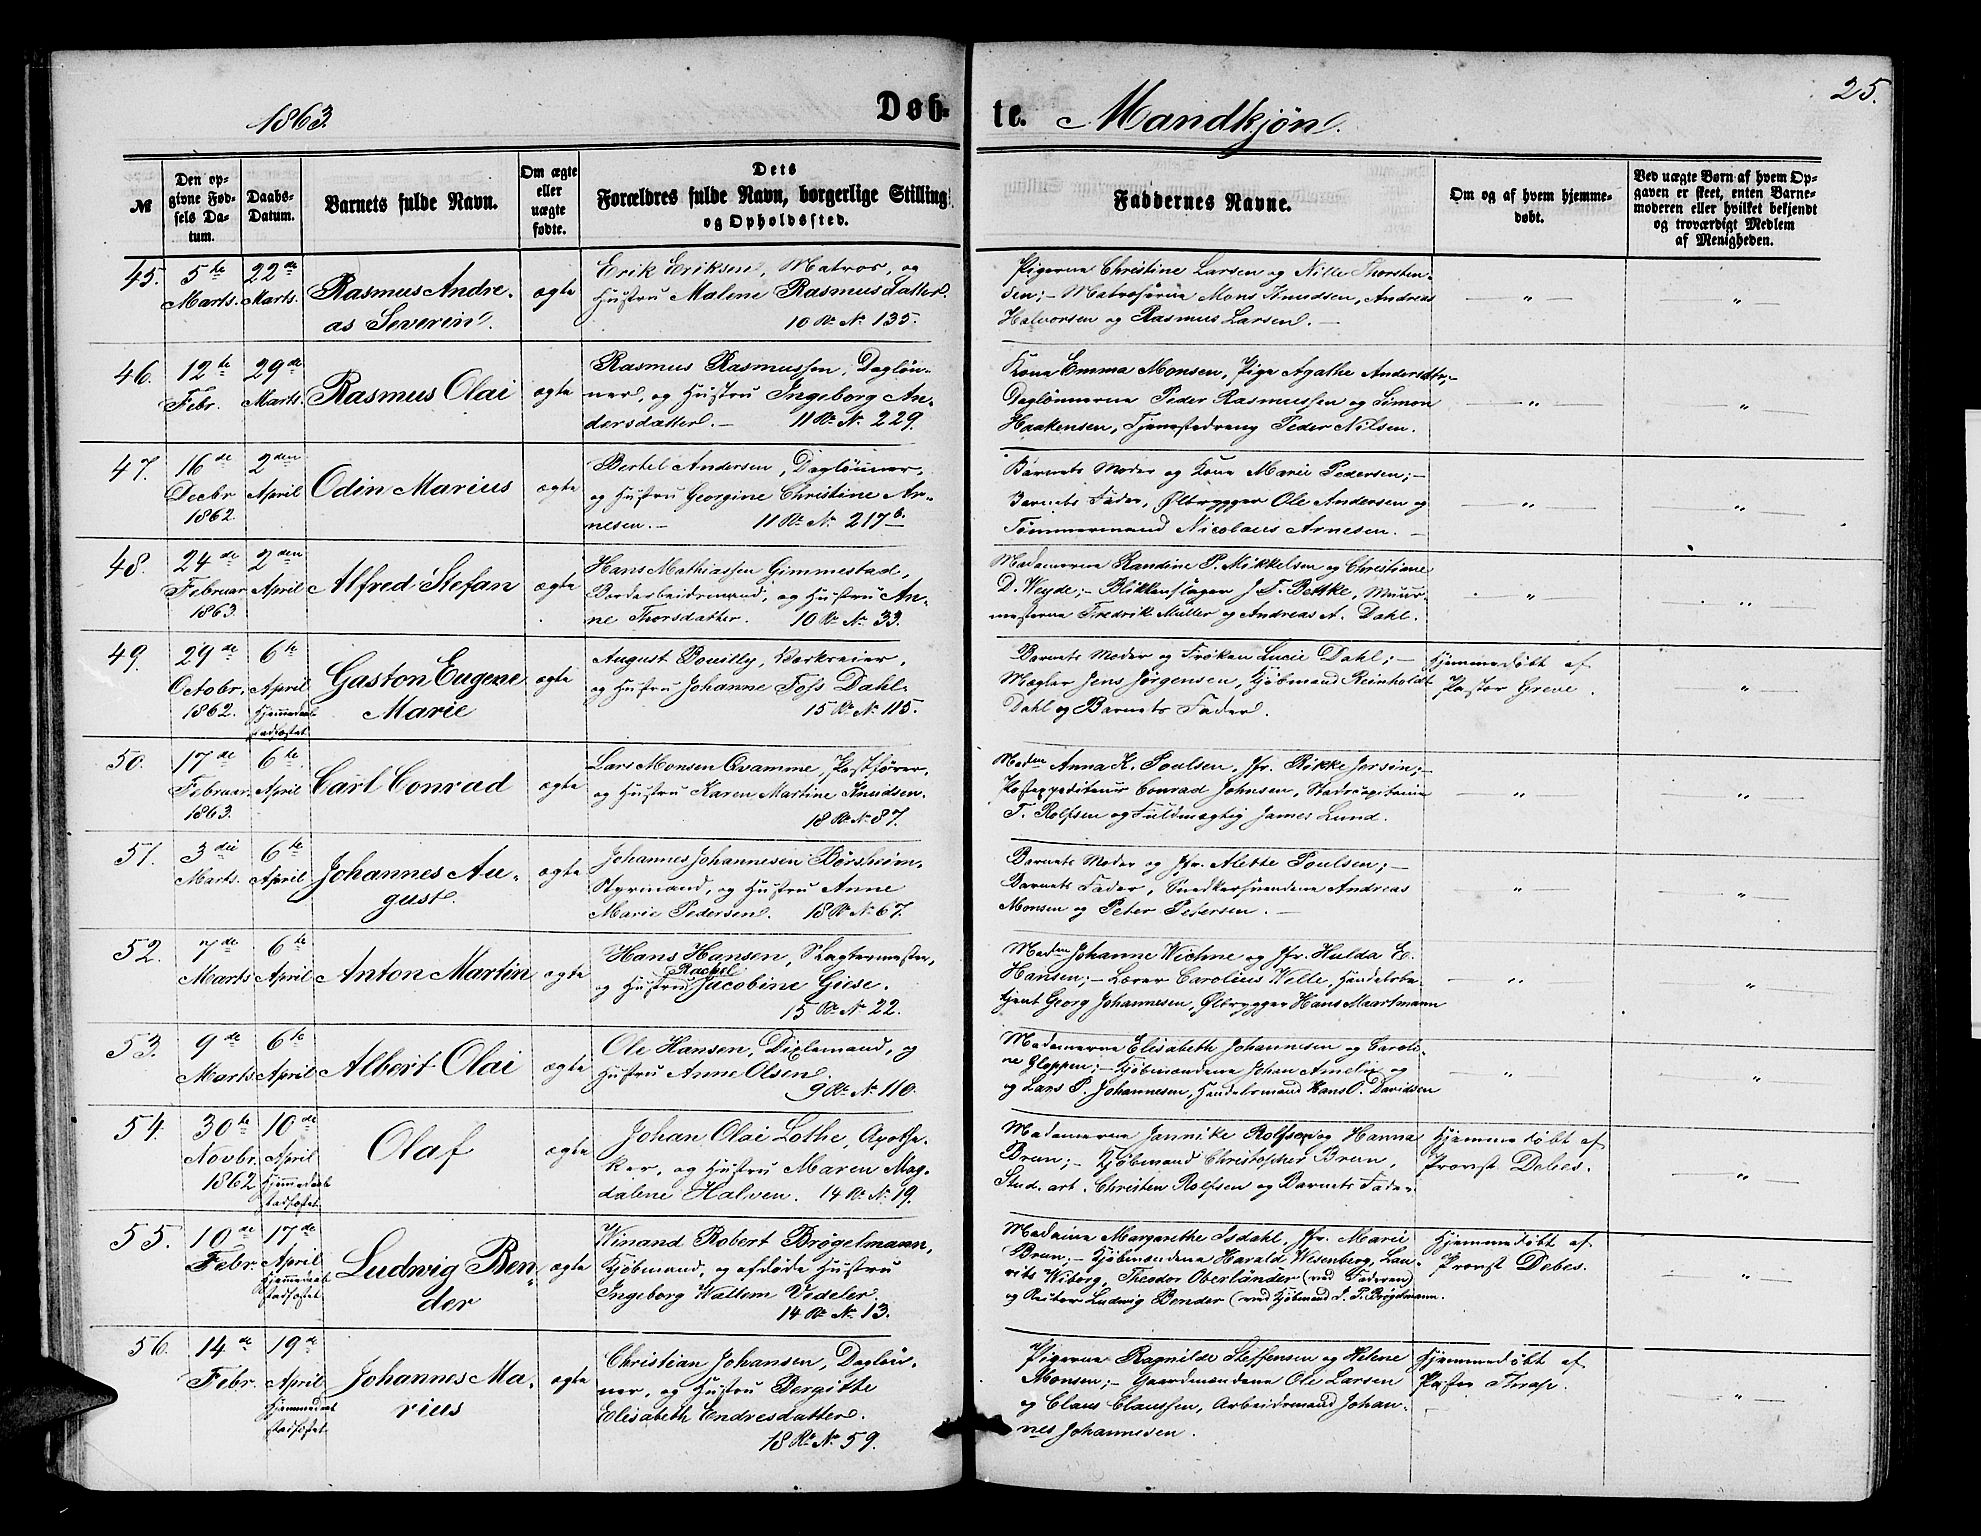 1863.
Døb-
te. Mandkjøn.
25.
№
Den op-
givne Fød-
sels Da-
tum.
Daabs-
Datum.
Barnets fulde Navn.
Om ægte
eller
uægte
fødte.
Dets
Forældres fulde Navn, borgerlige Stilling
og Opholdssted.
Faddernes Navne.
Om og af hvem hjemme-
døbt.
Ved uægte Børn af hvem Op-
gaven er skeet, enten Barne-
moderen eller hvilket bekjendt
og troværdigt Medlem
af Menigheden.
45.
5te
Marts.
22de
Marts.
Rasmus Andre-
as Severin.
ægte
Erik Eriksen, Matros, og
Hustru Malene Rasmusdatter.
10 R. N. 135.
Pigerne Christine Larsen og Nille Thorsten-
sen; – Matroserne Mons Knudsen, Andreas
Halvorsen og Rasmus Larsen. –
— „ —
— „ —
46.
12te
Febr.
29de
Marts.
Rasmus Olai
ægte
Rasmus Rasmussen, Dagløn-
ner, og Hustru Ingeborg An-
dersdatter. – 11 R. N. 229.
Kone Emma Monsen, Pige Agathe Andersdtr; –
Daglønnerne Peder Rasmussen og Simon
Haakensen, Tjenestedreng Peder Nilsen.
— „ —
„ —
47.
16de
Decbr
1862
2den
April
Odin Marius
ægte
Bertel Andersen, Daglønner,
og Hustru Georgine Christine Ar-
nesen. – 11 R. N. 217b.
Barnets Moder og Kone Marie Pedersen; –
Barnets Fader, Ølbrygger Ole Andersen og
Tømmermand Nicolaus Arnesen. –
— „ —
— „ —
48.
24de
Februar
1863
2den
April
Alfred Stefan
ægte
Hans Mathiassen Gimmestad,
Bordarbeidsmand, og Hustru An-
ne Thorsdatter. 10 R. N. 33.
Madamerne Randine P. Mikkelsen og Christiane
D. Weyde; – Blikkenslager J. F. Bettke, Muur-
mesterne Fredrik Müller og Andreas A. Dahl.
— „ —
— „ —
49.
29de
Octobr.
1862.
6te
April
Hjemmedaab
stadfæstet.
Gaston Eugene
Marie
ægte
August Bouilly, Værkseier,
og Hustru Johanne Foss Dahl.
15 R. N. 115.
Barnets Moder og Frøken Lucie Dahl; –
Mægler Jens Jørgensen, Kjøbmand Reinholdt
Dahl og Barnets Fader.
Hjemmedøbt af
Pastor Greve.
— „ —
50.
17de
Februar.
1863.
6te
April
Carl Conrad
ægte
Lars Monsen Qvamme, Postfører,
og Hustru Karen Martine Knudsen.
18 R. N. 87.
Maden Anna K. Poulsen, Jfr. Rikke Jersin; –
Postexpediteur Conrad Johnsen, Stadscapitaine
T. Rolfsen og Fuldmægtig James Lund.
— „ —
— „ —
51.
3die
Marts.
6te
April
Johannes Au-
gust.
ægte
Johannes Johannesen Børsheim,
Styrmand, og Hustru Anne
Marie Pedersen. 18 R. N. 67.
Barnets Moder og Jfr. Alette Poulsen; –
Barnets Fader, Snedkersvendene Andreas
Monsen og Peter Petersen. –
— „ —
— „ —
52.
7de
Marts
6te
April
Anton Martin
ægte
Hans Hansen, Slagtermester,
og Hustru Rachel Jacobine Giese.
15 R. N. 22.
Maden Johanne Wichne og Jfr. Hulda E.
Hansen; – Lærer Carolius Welle, Handelsbe-
tjent Georg Johannesen, Ølbrygger Hans Maartmann
— „ —
— „ —
53.
9de
Marts
6te
April
Albert Olai
ægte
Ole Hansen, Dixlemand, og
Hustru Anne Olsen.
9 R. N. 110.
Madamerne Elisabeth Johannesen og Caroli-
ne Gloppen; – Kjøbmændene Johan Ameln og
og Lars P. Johannesen, Handelsmand Hans O. Davidsen
— „ —
„ —
54.
30te
Novbr.
1862
10de
April
Hjemmedaab
stadfæstet.
Olaf
ægte
Johan Olai Lothe, Apothe-
ker, og Hustru Maren Mag-
dalene Halven. 14 R. N. 19.
Madamerne Jannike Rolfsen og Hanna
Brun; – Kjøbmand Christopher Brun,
Stud. art. Christen Rolfsen og Barnets Fader.
Hjemmedøbt af
Provst Debes.
— „ —
55.
10de
Febr.
17de
April
Hjemmedaab
stadfæstet.
Ludwig Ben-
der
ægte
Winand Robert Brøgelmann,
Kjøbmand, og afdøde Hustru
Ingeborg Wallem Vedeler.
14 R. N. 13.
Madame Margarethe Isdahl, Jfr. Marie
Brun. – Kjøbmændene Harald Wesenberg, Lau-
rits Wiborg, Theodor Oberländer (ved Faderen)
og Reiter Ludwig Bender (ved Kjøbmand J. P. Brøgelmann.
Hjemmedøbt af
Provst Debes.
— „ —
56.
14de
Febr.
19de
April
Hjemmedaab
stadfæstet.
Johannes Ma-
rius
ægte
Christian Johansen, Dagløn-
ner, og Hustru Bergitte
Elisabeth Endresdatter.
18 R. N. 59.
Pigerne Ragnilde Steffensen og Helene
Monsen; – Gaardmændene Ole Larsen
og Claus Claussen, Arbeidsmand Johan-
nes Johannesen.
Hjemmedøbt af
Pastor Thrap.
— „ —